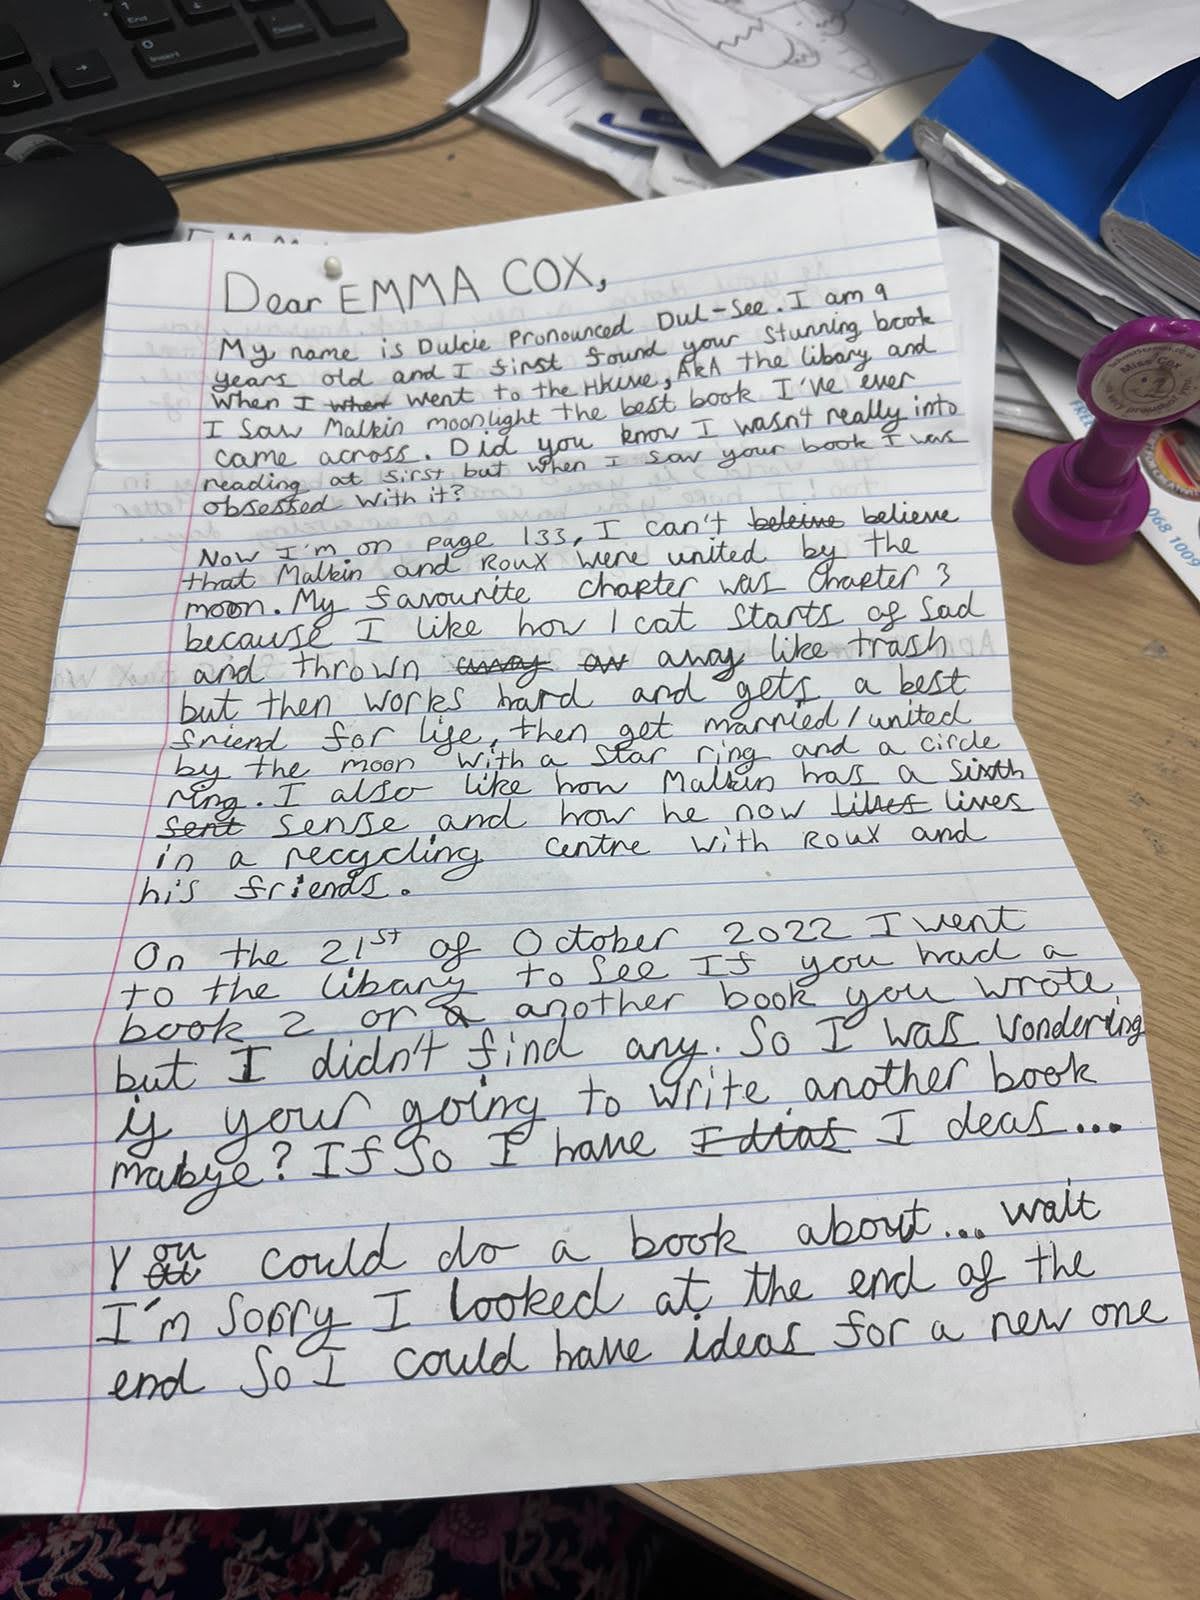 Dear EMMA COX,
My name is Dulcie Pronounced Dul-See. I am 9
years old and I first found your stunning book
when I when went to the Hkive, AKA the libary and
I saw Malkin moonlight the best book I've ever
came across. Did you know I wasn't really into
reading at first but when I saw your book I was
obsessed with it?
Now I'm on page 133, I can't beleive believe
that Malkin and Roux were united by the
moon. My favourite chapter was Chapter 3
because I like how 1 cat starts of sad
and thrown away aw away like trash
but then works hard and gets a best
friend for life, then get married/united
by the moon with a star ring and a circle
ring. I also like how Malkin has a sixth
sent sense and how he now likes lives
in a recycling centre with Roux and
his friends.
On the 21st of October 2022 I went
to the libary to see If you had a
book 2 or a another book you wrote
but I didn't find any. So I was wondering
if your going to write another book
mabye? If so I have Idias I deas...
You could do a book about... wait
I'm sorry I looked at the end of the
end so I could have ideas for a new one
End
0
Insert
Miss Cox
068 1009